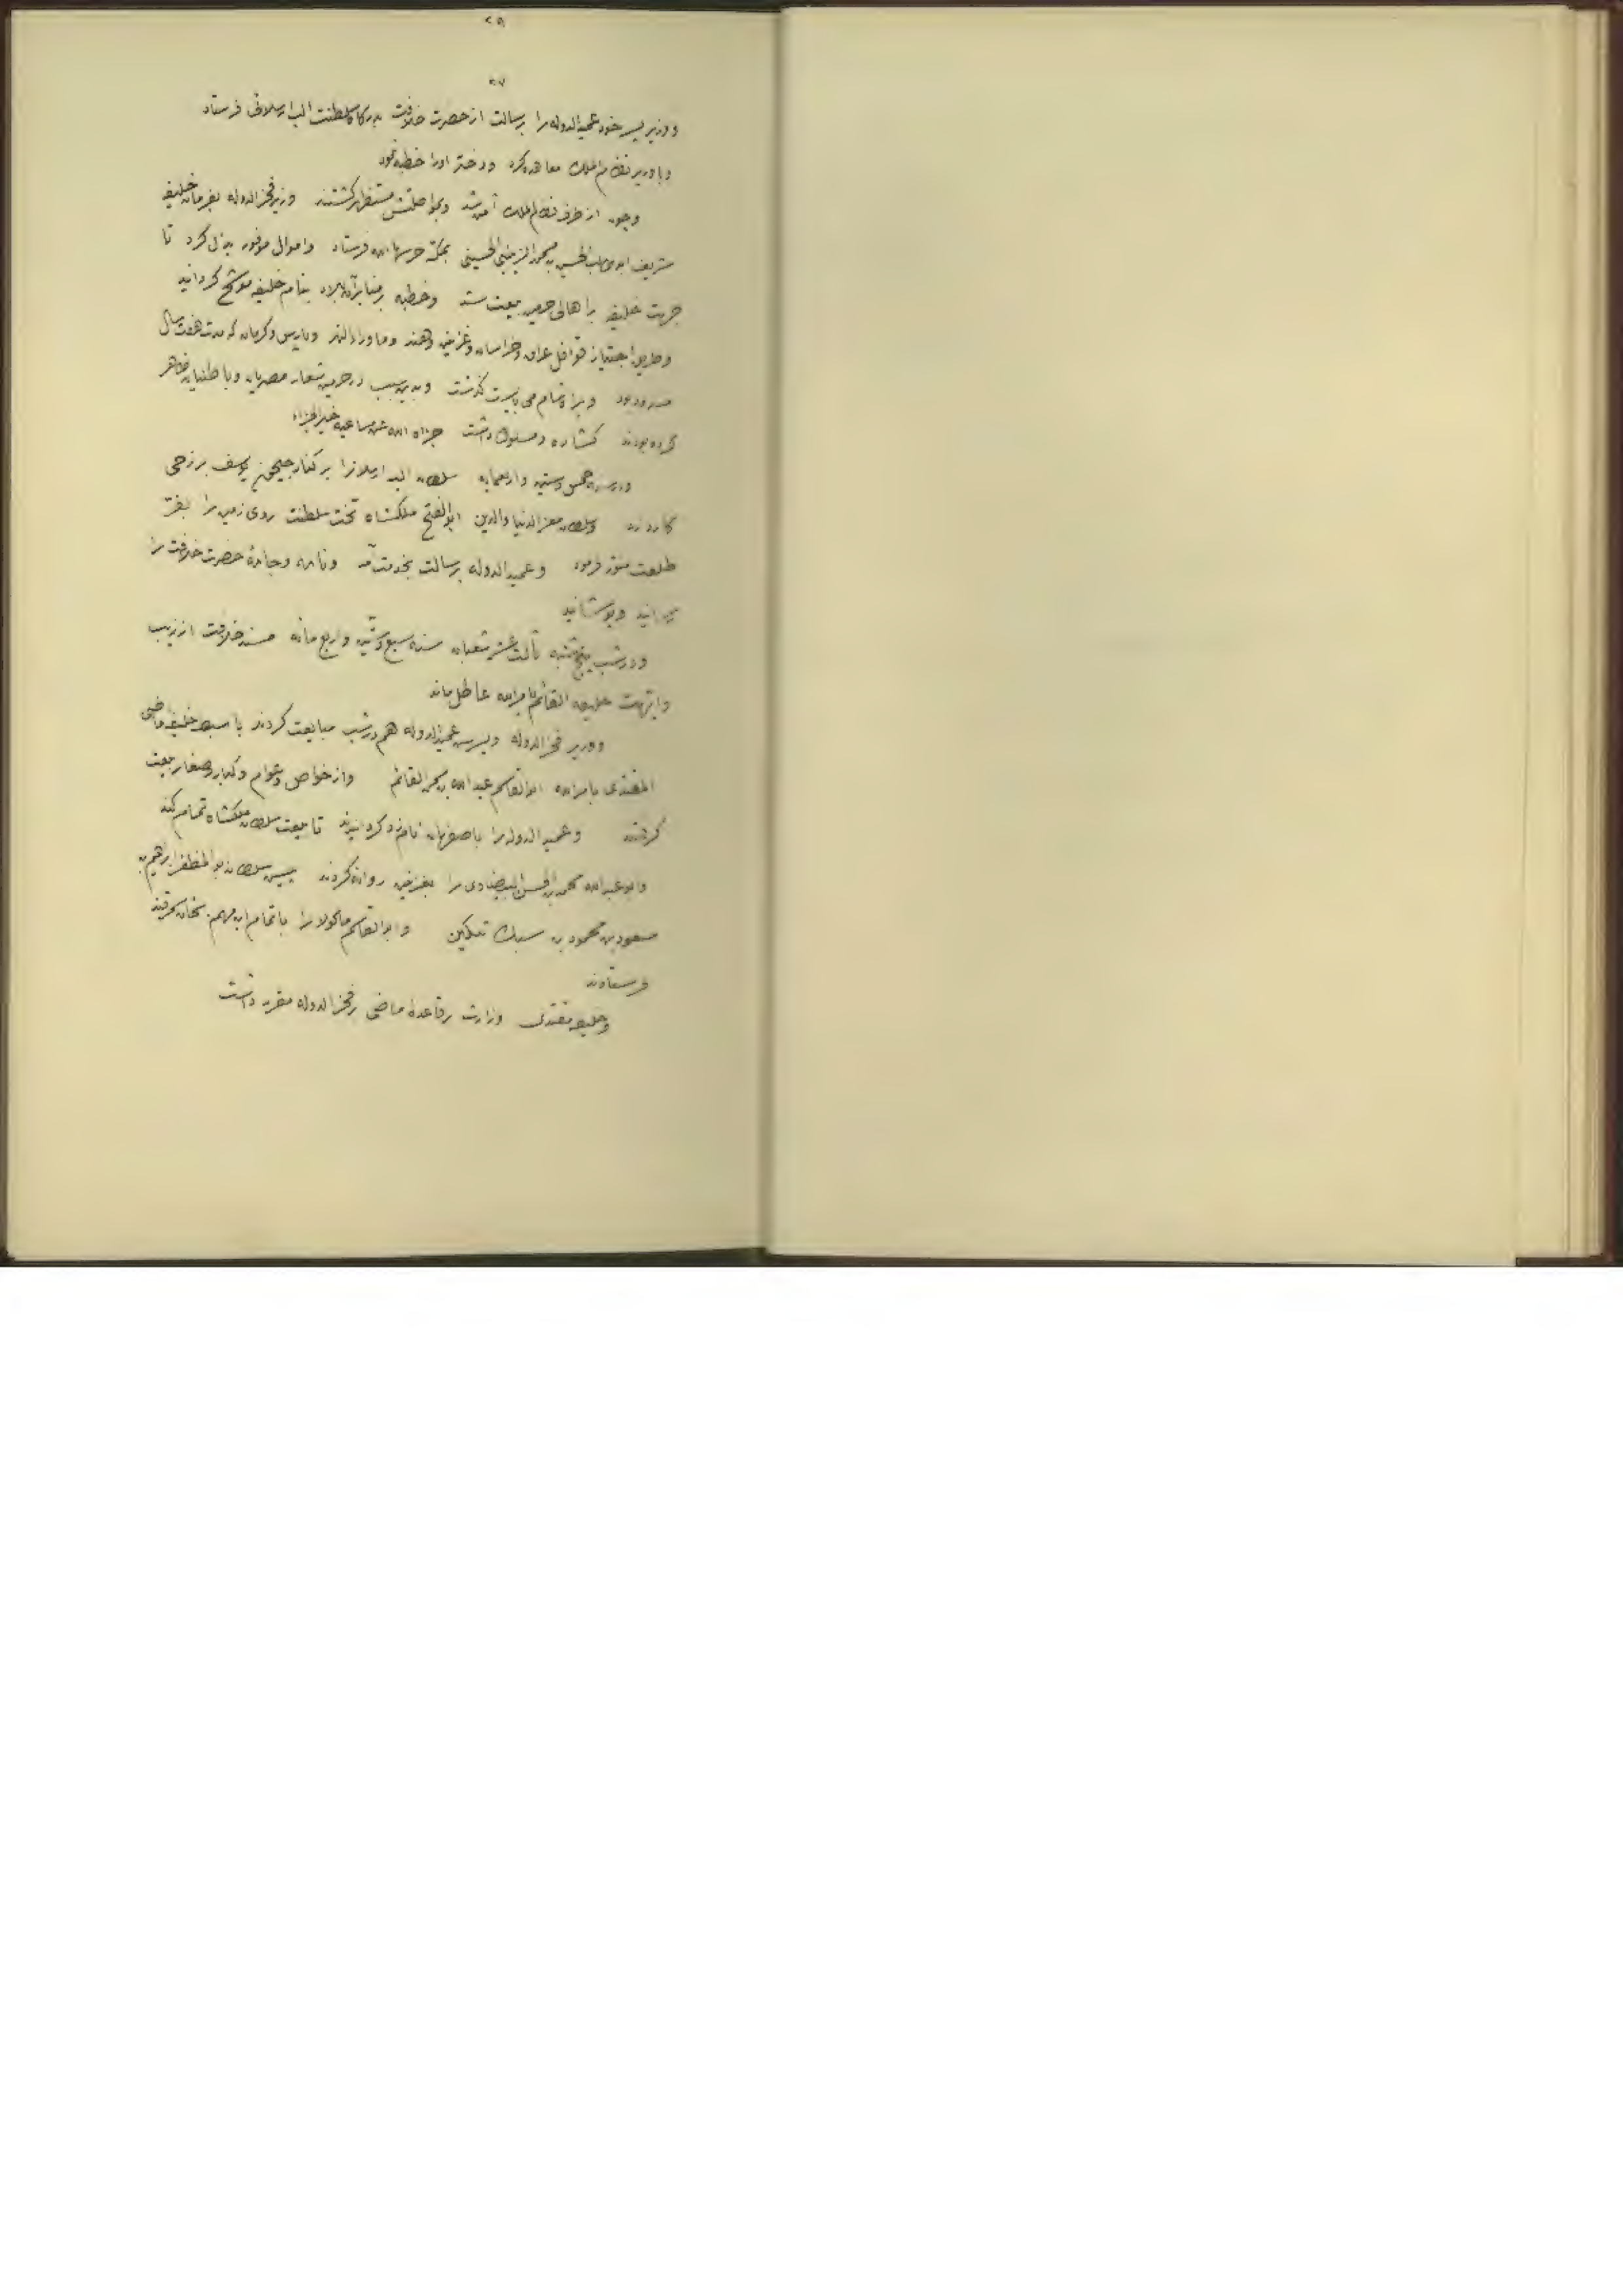 ۲۵
۲۷
و وزیر پسر خود عمید الدوله را برسالت از حضرت خلافت بدرکاه سلطنت الب ارسلانی فرستاد
و با وزیر نظام الملک معاهده کرد و دختر او را خطبه نمود
و چون از طرف نظام الملک آمن شد و بمواصلتش مستظهر کشتند وزیر فخر الدوله بفرمان خلیفه
شریف ابو طالب الحسن بن محمد الزینبی الحسینی بمکه حرسها الله فرستاد و اموال موفور بذل کرد تا
جهت خلیفه بر اهالی حرمین بیعت ستد و خطبه بر منابر آن بلاد بنام خلیفه موشح کردانید
و طریق اجتیاز قوافل عراق و خراسان و غزنین و هند و ماوراء النهر و پارس و کرمان که مدت هفت سال
مسدود بود و بر راه شام می بایست کذشت و بدین سبب در حرمین شعار مصریان و باطنیان ظاهر
کرده بودند کشاده و مسلوک داشت جزاه الله عن مساعیه خیر الجزاء
و در سنه خمس و ستین و اربعمایه سلطان الب ارسلانرا بر کنار جیحون یوسف برزمی
کارد زد و سلطان معز الدنیا و الدین ابو الفتح ملکشاه تخت سلطنت روی زمین را بفر
طلعت منور فرمود و عمید الدوله برسالت بخدمت آمد و نامه و جامهٔ حضرت خلافت را
برسانید و پوشانید
و در شب پنج شنبه ثالث عشر شعبان سنه سبع و ستین و اربع مائه مسند خلافت از زیب
و ابهت خلیفه القائم بامر الله عاطل ماند
و وزیر فخر الدوله و پسرش عمید الدوله هم در شب مبایعت کردند با سبط خلیفه ماضی
المقتدی بامر الله ابو القاسم عبد الله بن محمد القائم و از خواص و عوام و کبار و صغار بیعت
کرفتند و عمید الدوله را باصفهان نامزد کردانیدند تا بیعت سلطان ملکشاه تمام کند
و ابو عبد الله محمد بن الحسن البیضاوی را بغزنین روانه کردند پیش سلطان ابو المظفر ابراهیم بن
مسعود بن محمود بن سبک تکین و ابو القاسم ماکولا را باتمام این مهم بخان سمرقند
فرستادند
و خلیفه مقتدی وزارت بر قاعدهٔ ماضی بر فخر الدوله مقرر داشت